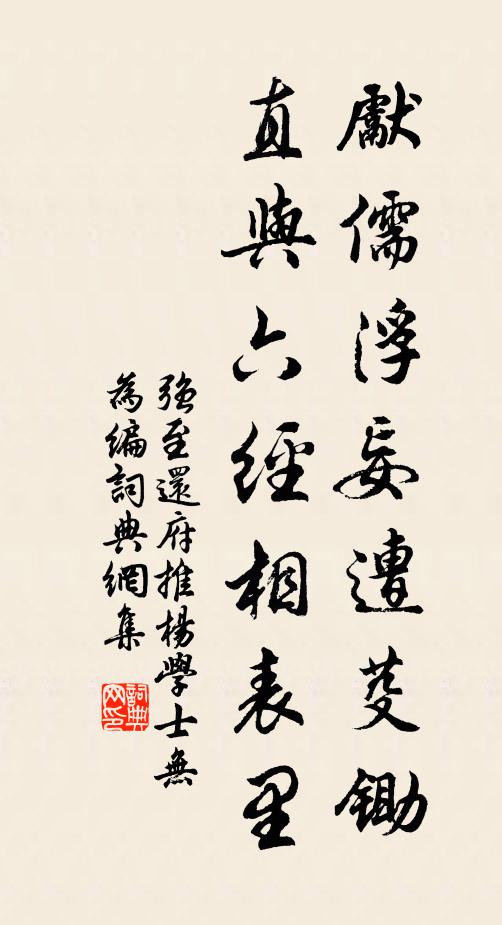 獻儒浮妄遭芟鋤
直與六經相表里
強至還府推楊學士無
為編詞典網集
詞典
网印